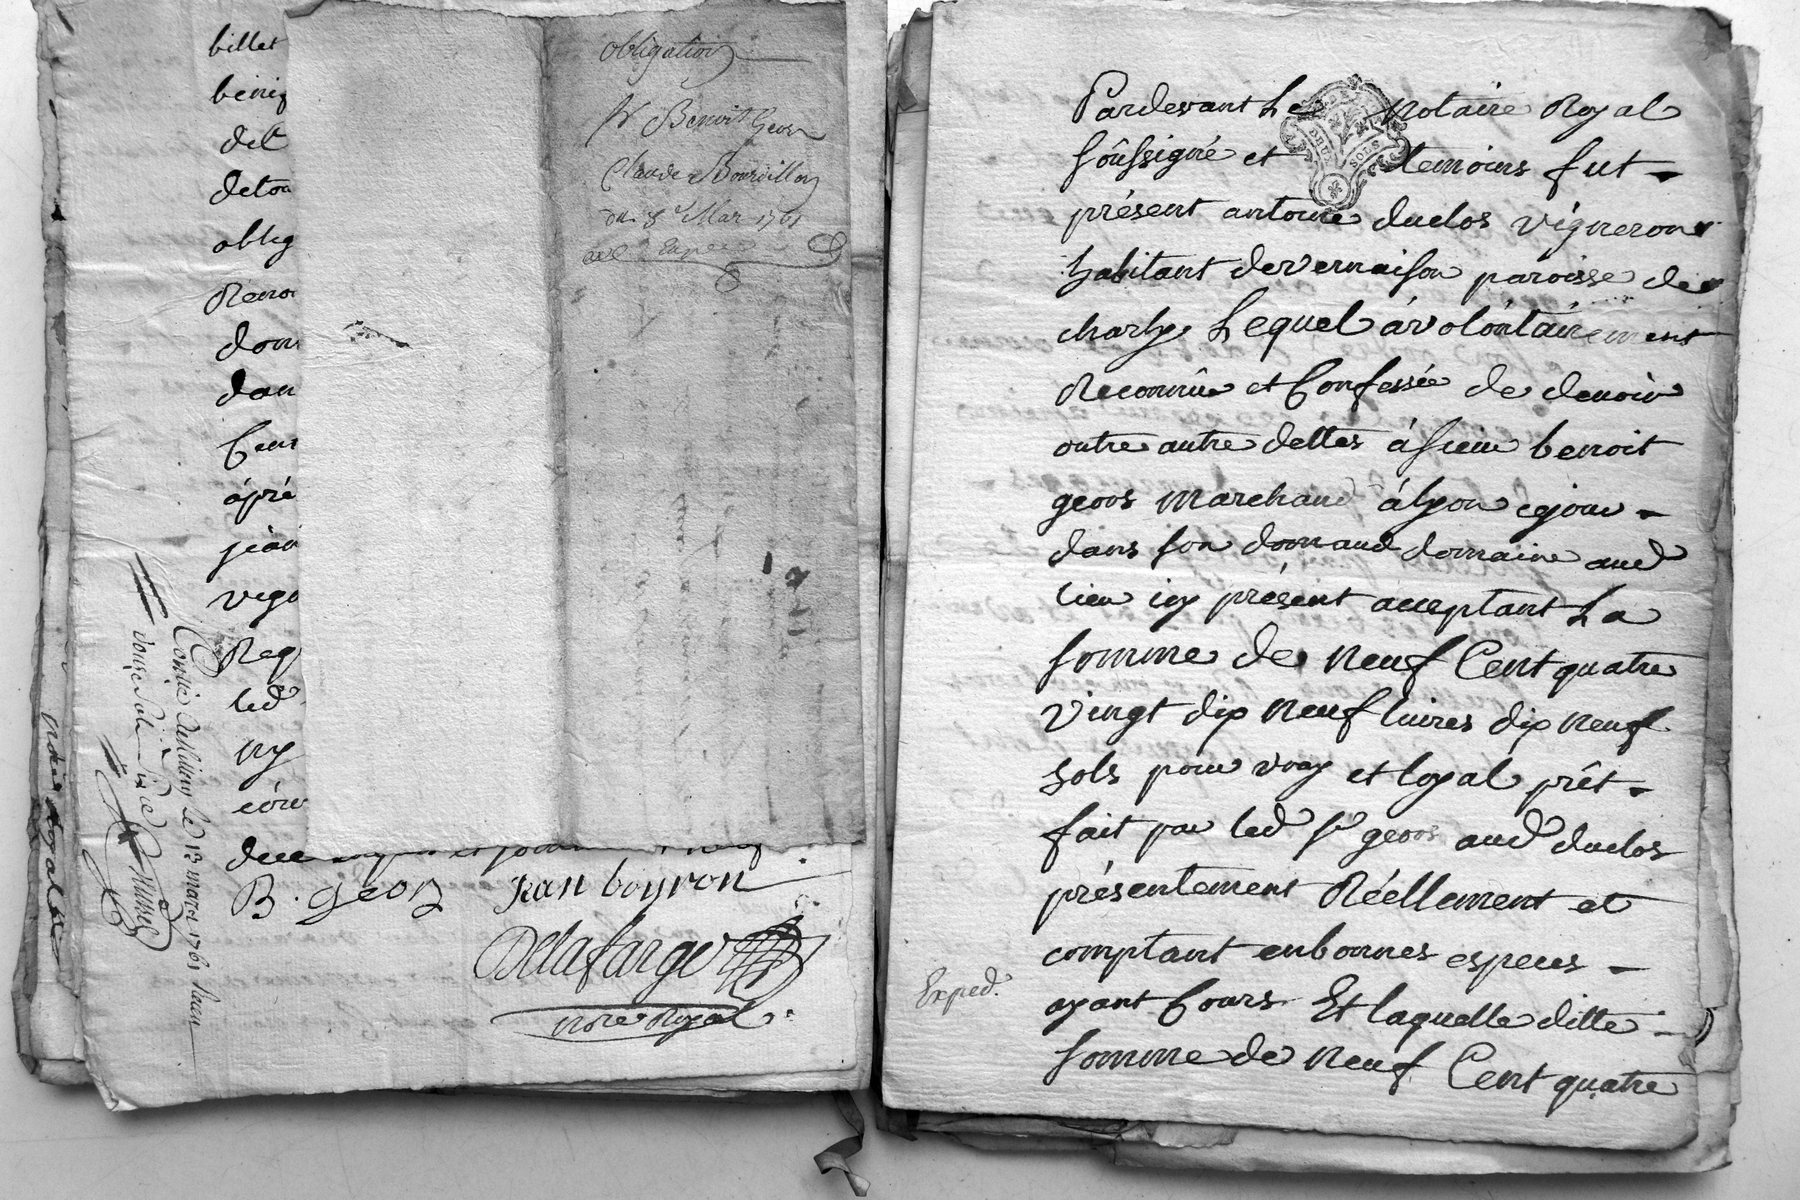 billet
benig
del
detou
oblig
Renon
don
dan
Cens
âpré
jean
vign
Req
led
ny
B. geoz jean boyron
Delafarge
nore Royal
Contrôlé le 13 mars 1761 Reçu
obligation
Sr Benoit Geos
Claude Bourdillon
du 8e Mar 1761
nore Royal
Pardevant Le Notaire Royal
soûssigné et temoins fut
présent antoine duclos vigneron
habitant de vernaison paroisse de
charly Lequel á volóntairement
Reconnû et Confessée de devoir
outre autre dettes á sieur benoit
geoos Marchand á lyon ejour
dans son domaud domaine aud
lieu icy présent acceptant La
somme de Neuf Cent quatre
vingt dix Neuf livres dix Neuf
sols pour vray et loyal prêt
fait par led sr geoos aud duclos
présentement Réellement et
comptant en bonnes especes
ayant Cours Et laquelle ditte
somme de Neuf Cent quatre
Exped.
DEUX SOLS